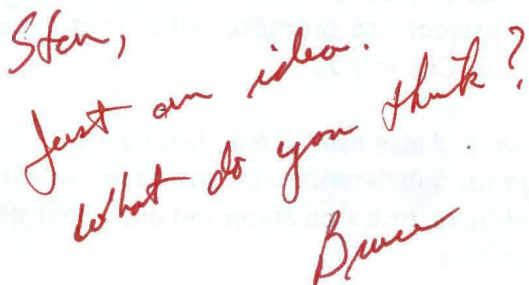 Stan,
Just an idea.
What do you think?
Bruce